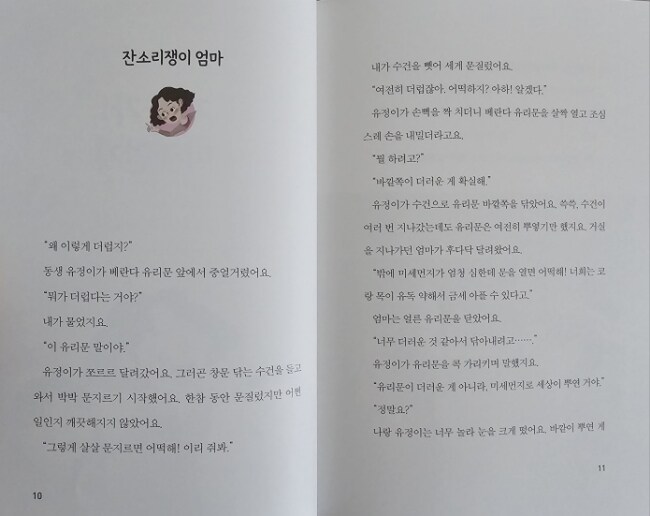 잔소리쟁이 엄마
“왜 이렇게 더럽지?”
동생 유정이가 베란다 유리문 앞에서 중얼거렸어요.
“뭐가 더럽다는 거야?”
내가 물었지요.
“이 유리문 말이야.”
유정이가 쪼르르 달려갔어요. 그러곤 창문 닦는 수건을 들고
와서 박박 문지르기 시작했어요. 한참 동안 문질렀지만 어쩐
일인지 깨끗해지지 않았어요.
“그렇게 살살 문지르면 어떡해! 이리 줘봐.”
10
내가 수건을 뺏어 세게 문질렀어요.
“여전히 더럽잖아. 어떡하지? 아하! 알겠다.”
유정이가 손뼉을 짝 치더니 베란다 유리문을 살짝 열고 조심
스레 손을 내밀더라고요.
“뭘 하려고?”
“바깥쪽이 더러운 게 확실해.”
유정이가 수건으로 유리문 바깥쪽을 닦았어요. 쓱쓱, 수건이
여러 번 지나갔는데도 유리문은 여전히 뿌옇기만 했지요. 거실
을 지나가던 엄마가 후다닥 달려왔어요.
“밖에 미세먼지가 엄청 심한데 문을 열면 어떡해! 너희는 코
랑 목이 유독 약해서 금세 아플 수 있다고.”
엄마는 얼른 유리문을 닫았어요.
“너무 더러운 것 같아서 닦아내려고…….”
유정이가 유리문을 콕 가리키며 말했지요.
“유리문이 더러운 게 아니라, 미세먼지로 세상이 뿌연 거야.”
“정말요?”
나랑 유정이는 너무 놀라 눈을 크게 떴어요. 바깥이 뿌연 게
11